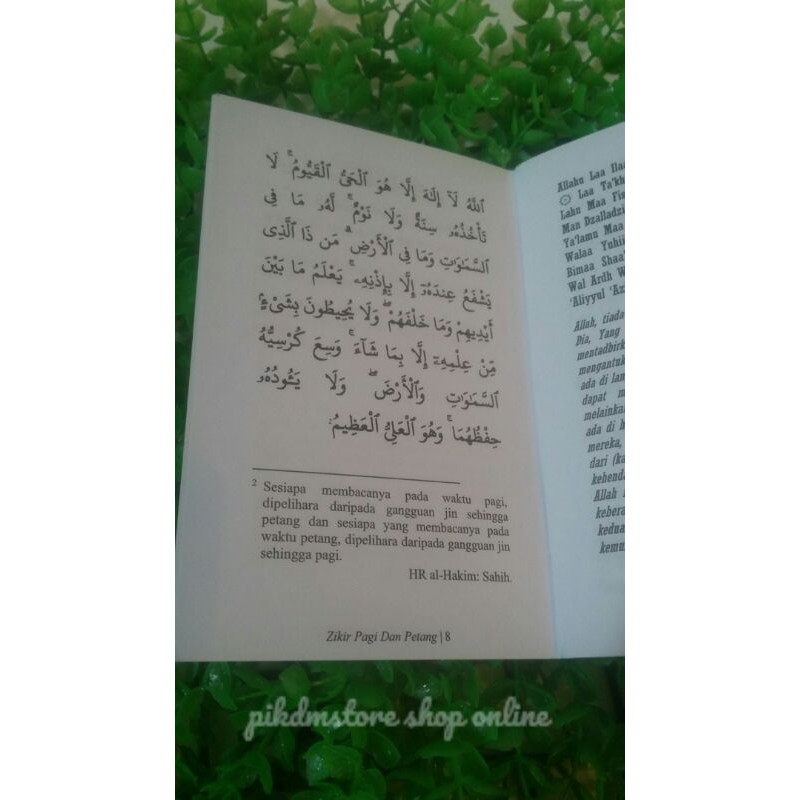 ٱللَّهُ لَآ إِلَٰهَ إِلَّا هُوَ ٱلْحَىُّ ٱلْقَيُّومُ ۚ لَا
تَأْخُذُهُۥ سِنَةٌ وَلَا نَوْمٌ ۚ لَّهُۥ مَا فِى
ٱلسَّمَٰوَٰتِ وَمَا فِى ٱلْأَرْضِ ۗ مَن ذَا ٱلَّذِى
يَشْفَعُ عِندَهُۥٓ إِلَّا بِإِذْنِهِۦ ۚ يَعْلَمُ مَا بَيْنَ
أَيْدِيهِمْ وَمَا خَلْفَهُمْ ۖ وَلَا يُحِيطُونَ بِشَىْءٍ
مِّنْ عِلْمِهِۦٓ إِلَّا بِمَا شَآءَ ۚ وَسِعَ كُرْسِيُّهُ
ٱلسَّمَٰوَٰتِ وَٱلْأَرْضَ ۖ وَلَا يَـُٔودُهُۥ
حِفْظُهُمَا ۚ وَهُوَ ٱلْعَلِىُّ ٱلْعَظِيمُ 2
2 Sesiapa membacanya pada waktu pagi,
dipelihara daripada gangguan jin sehingga
petang dan sesiapa yang membacanya pada
waktu petang, dipelihara daripada gangguan jin
sehingga pagi.
HR al-Hakim: Sahih.
Zikir Pagi Dan Petang | 8
Allahu Laa
Laa
Lahu Maa
Man Dzalladzi
Ya'lamu Maa
Walaa
Bimaa
Wal Ardh
'Aliyyul
Allah,
Dia, Yang
ada di
dapat
ada di
mereka,
dari
Allah
pikdmstore shop online